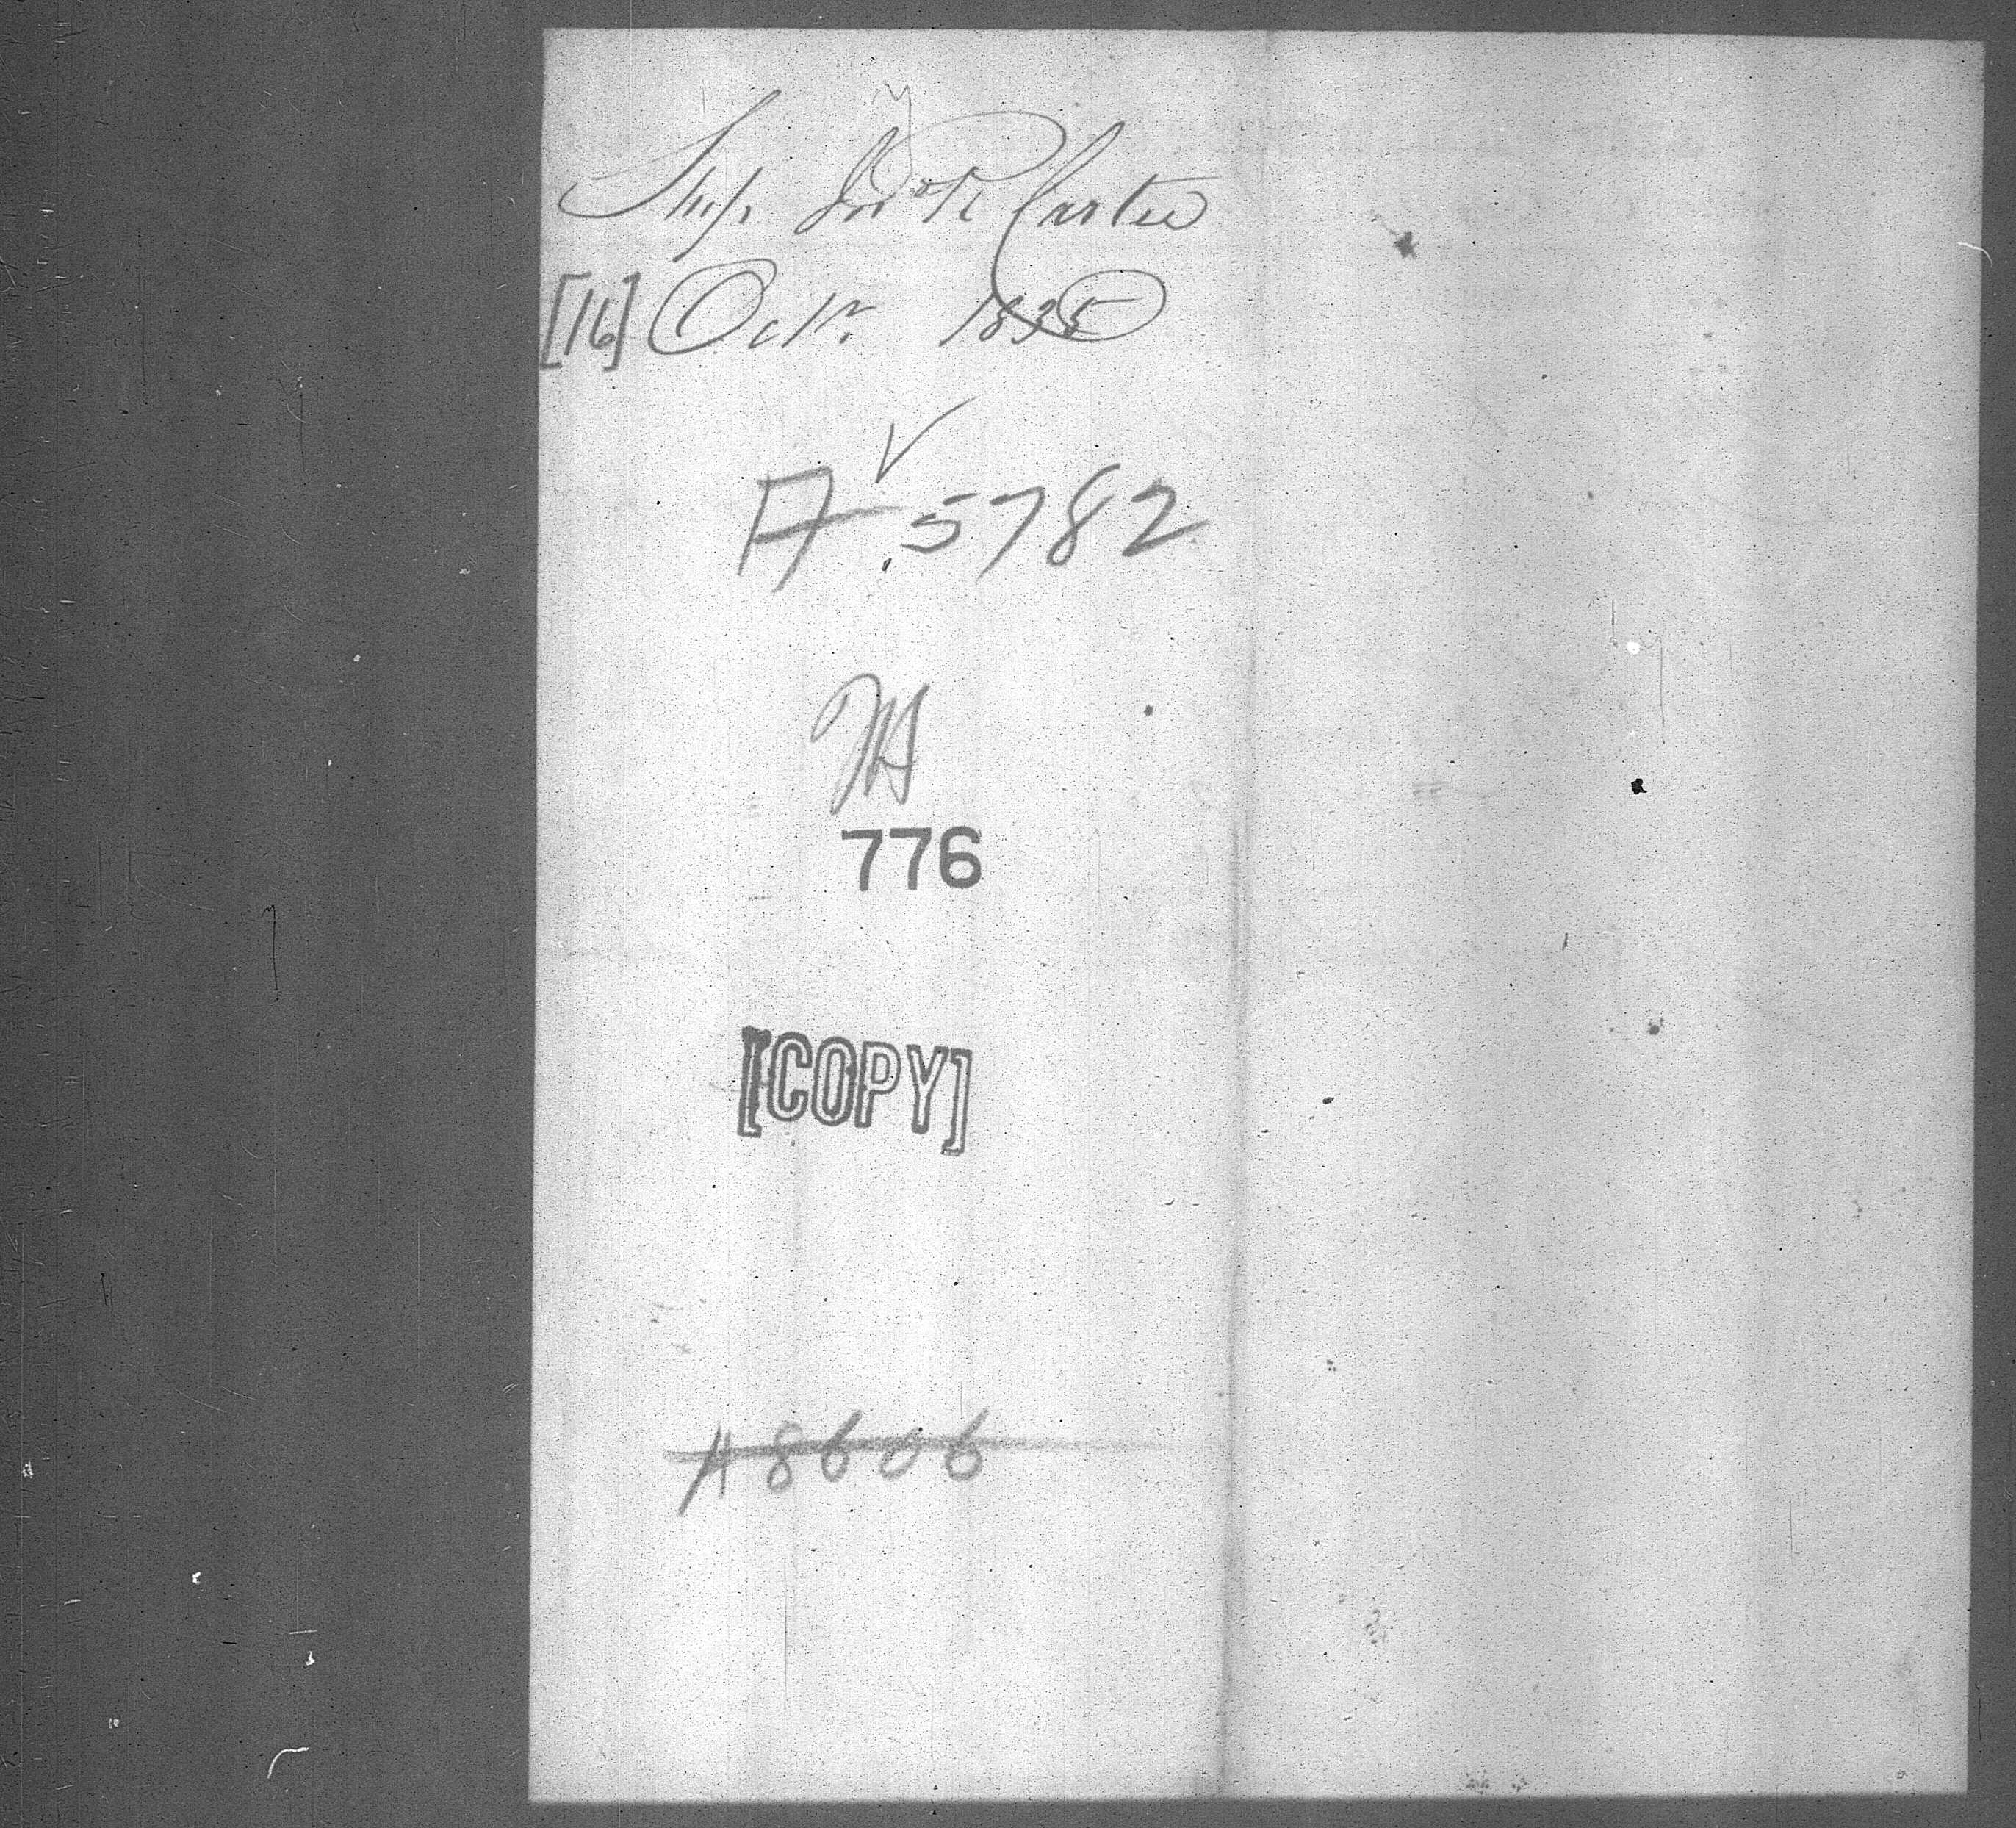 Jno R Carter
[16] Octr. 1835
A 5782
776
[COPY]
A 8606